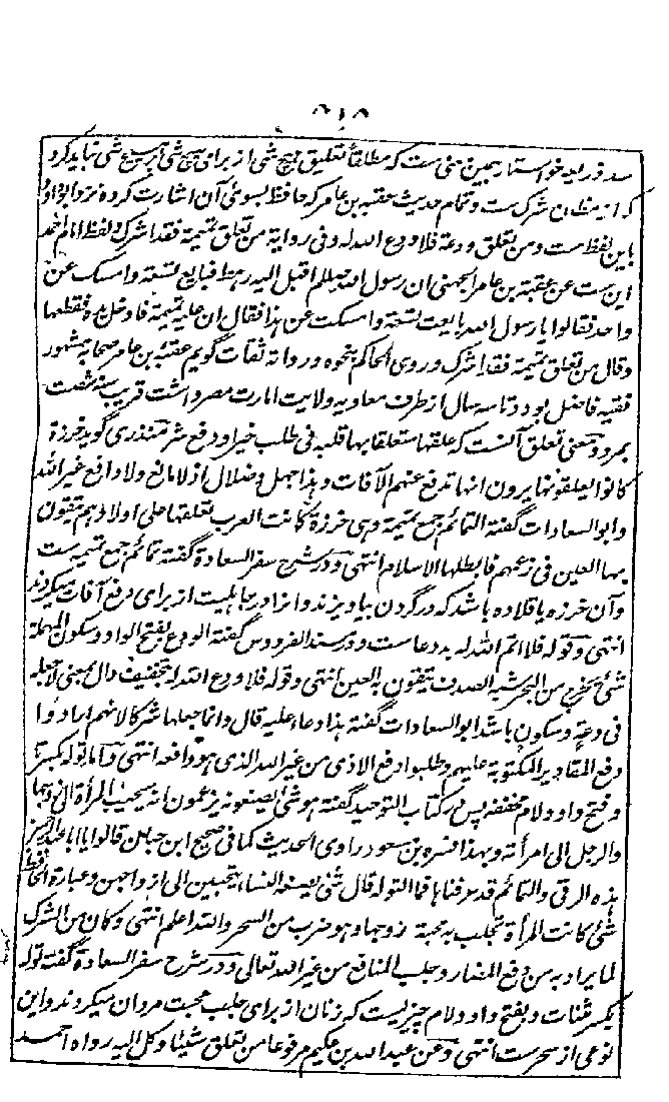 ۵۱۸
سد ذرایع خواستار ہمین معنی ست کہ مطلقاً تعلیق ہیچ شی از برای ہیچ شی از ہیچ شی نباید کرد
کہ از مظان شرک ست و تمام حدیث عقبہ بن عامر کہ حافظ بسوئی آن اشارت کردہ نزد ابوداؤد
باین لفظ ست ومن تعلق ودعة فلا ودع اللہ لہ وفی روایة من تعلق تمیمة فقد اشرک ولفظ امام احمد
این ست عن عقبة بن عامر الجہنی ان رسول اللہ صلعم اقبل الیہ رہط فبایع تسعة وامسک عن
واحد فقالوا یا رسول اللہ بایعت تسعة وامسکت عن ہذا فقال ان علیہ تمیمة فادخل یدہ فقطعہا
وقال من تعلق تمیمة فقد اشرک وروی الحاکم نحوہ ورواتہ ثقات گویم عقبہ بن عامر صحابی مشہور
فقیہ فاضل بود و تا سہ سال از طرف معاویہ ولایت امارت مصر داشت قریب سنہ شصت
بمرد و معنی تعلق آنست کہ علقہا متعلقا بہا قلبہ فی طلب خیر او دفع شر منذری گوید خرزة
کانوا یعلقونہا یرون انہا تدفع عنہم الآفات وہذا جہل وضلال اذ لا مانع ولا دافع غیر اللہ
وابو السعادات گفتہ التمائم جمع تمیمة وہی خرزة کانت العرب تعلقہا علی اولادہم یتقون
بہا العین فی زعمہم فابطلہا الاسلام انتہی و در شرح سفر السعادة گفتہ تمائم جمع تمیمہ ست
وآن خرزہ یا قلادہ باشد کہ در گردن بیاویزند و از در جاہلیت از برای دفع آفات میکردند
انتہی وقولہ فلا اتم اللہ لہ بددعاست و در مسند الفردوس گفتہ الودع بفتح الواو وسکون المہملة
شئ یخرج من البحر شبہ الصدف یتقون بہ العین انتہی وقولہ فلا ودع اللہ لہ بتخفیف دال بمعنی لا جعلہ
فی دعة وسکون باشد ابو السعادات گفتہ ہذا دعاء علیہ قال وانما جعلہا شرکا لانہم ارادوا
دفع المقادیر المکتوبة علیہم وطلبوا دفع الاذی من غیر اللہ الذی ہو دافعہ انتہی واما تولہ بکسر تا
وفتح واو ولام مخففہ پس در کتاب التوحید گفتہ ہو شئ یصنعونہ یزعمون انہ یحبب المرأة الی زوجہا
والرجل الی امرأتہ وبہذا فسرہ بن مسعود راوی الحدیث کما فی صحیح ابن حبان قالوا یا ابا عبد الرحمن
ہذہ الرقی والتمائم قد عرفناہا فما التولہ قال شئ یصنعہ النساء یتحببن الی ازواجہن وعبارة الحافظ
شئ کانت المرأة تجلب بہ محبة زوجہا وہو ضرب من السحر واللہ اعلم انتہی وکان من الشرک
لما یراد بہ من دفع المضار وجلب المنافع من غیر اللہ تعالی و در شرح سفر السعادة گفتہ تولہ
بکسر مثنات و بفتح واو ولام چیزیست کہ زنان از برای جلب محبت مردان میکردند و این
نوعی از سحر ست انتہی وعن عبد اللہ بن عکیم مرفوعا من تعلق شیئا وکل الیہ رواہ احمد